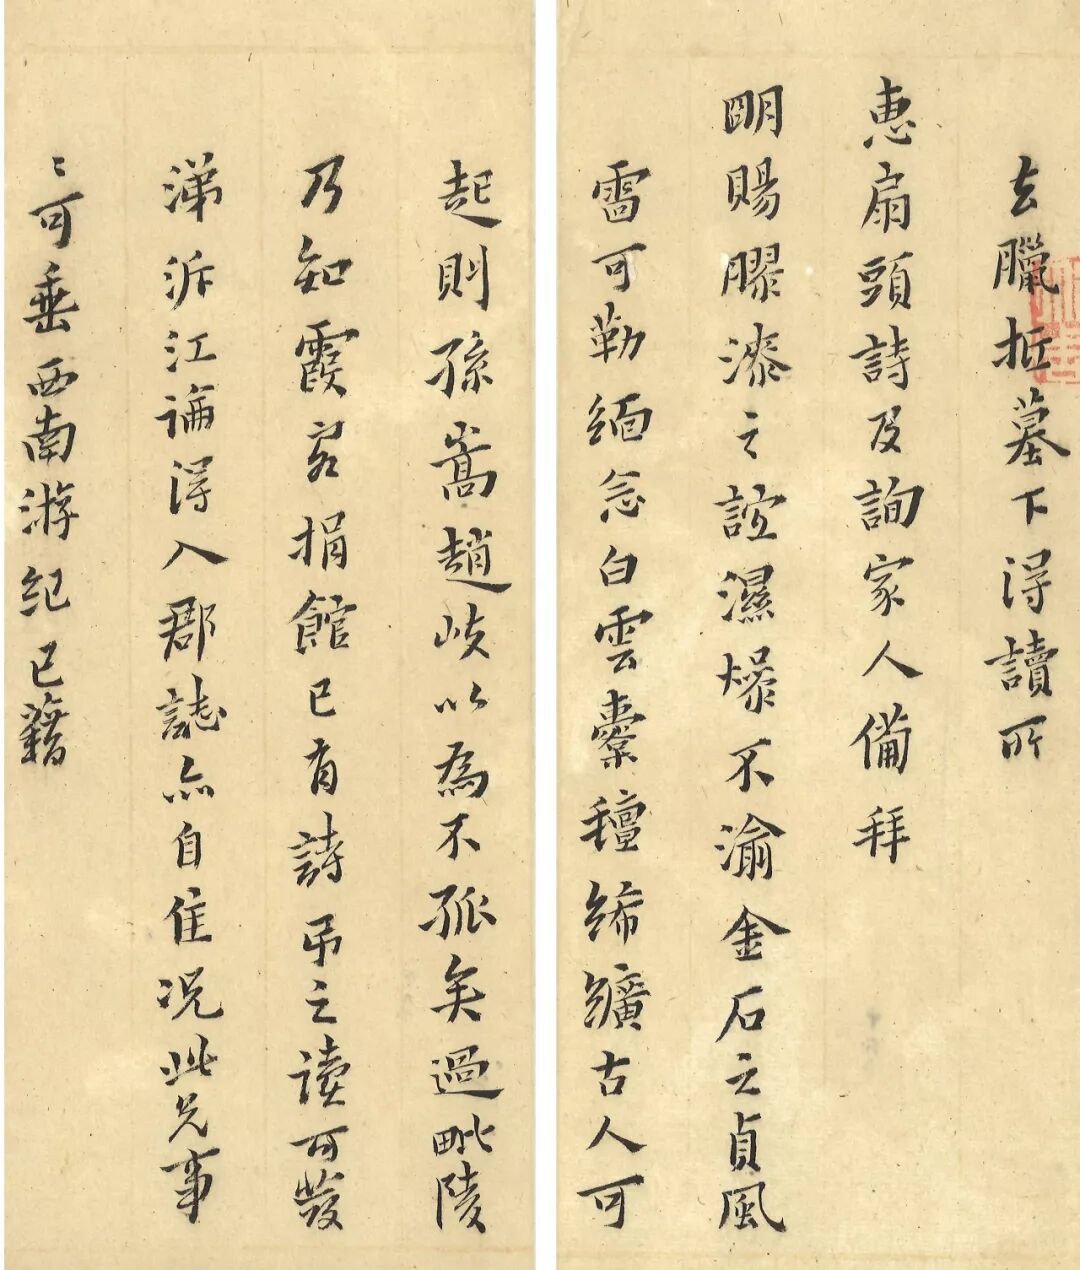 去臘抵墓下得讀所
惠扇頭詩及詢家人備拜
明賜膠漆之誼濕燥不渝金石之貞風
雷可勒緬念白雲橐饘絺纊古人可
起則孫嵩趙岐以為不孤矣過毗陵
乃知霞客捐館已有詩吊之讀可發
涕泝江論得入郡誌亦自佳況此兄事
〻可垂西南游紀已藉